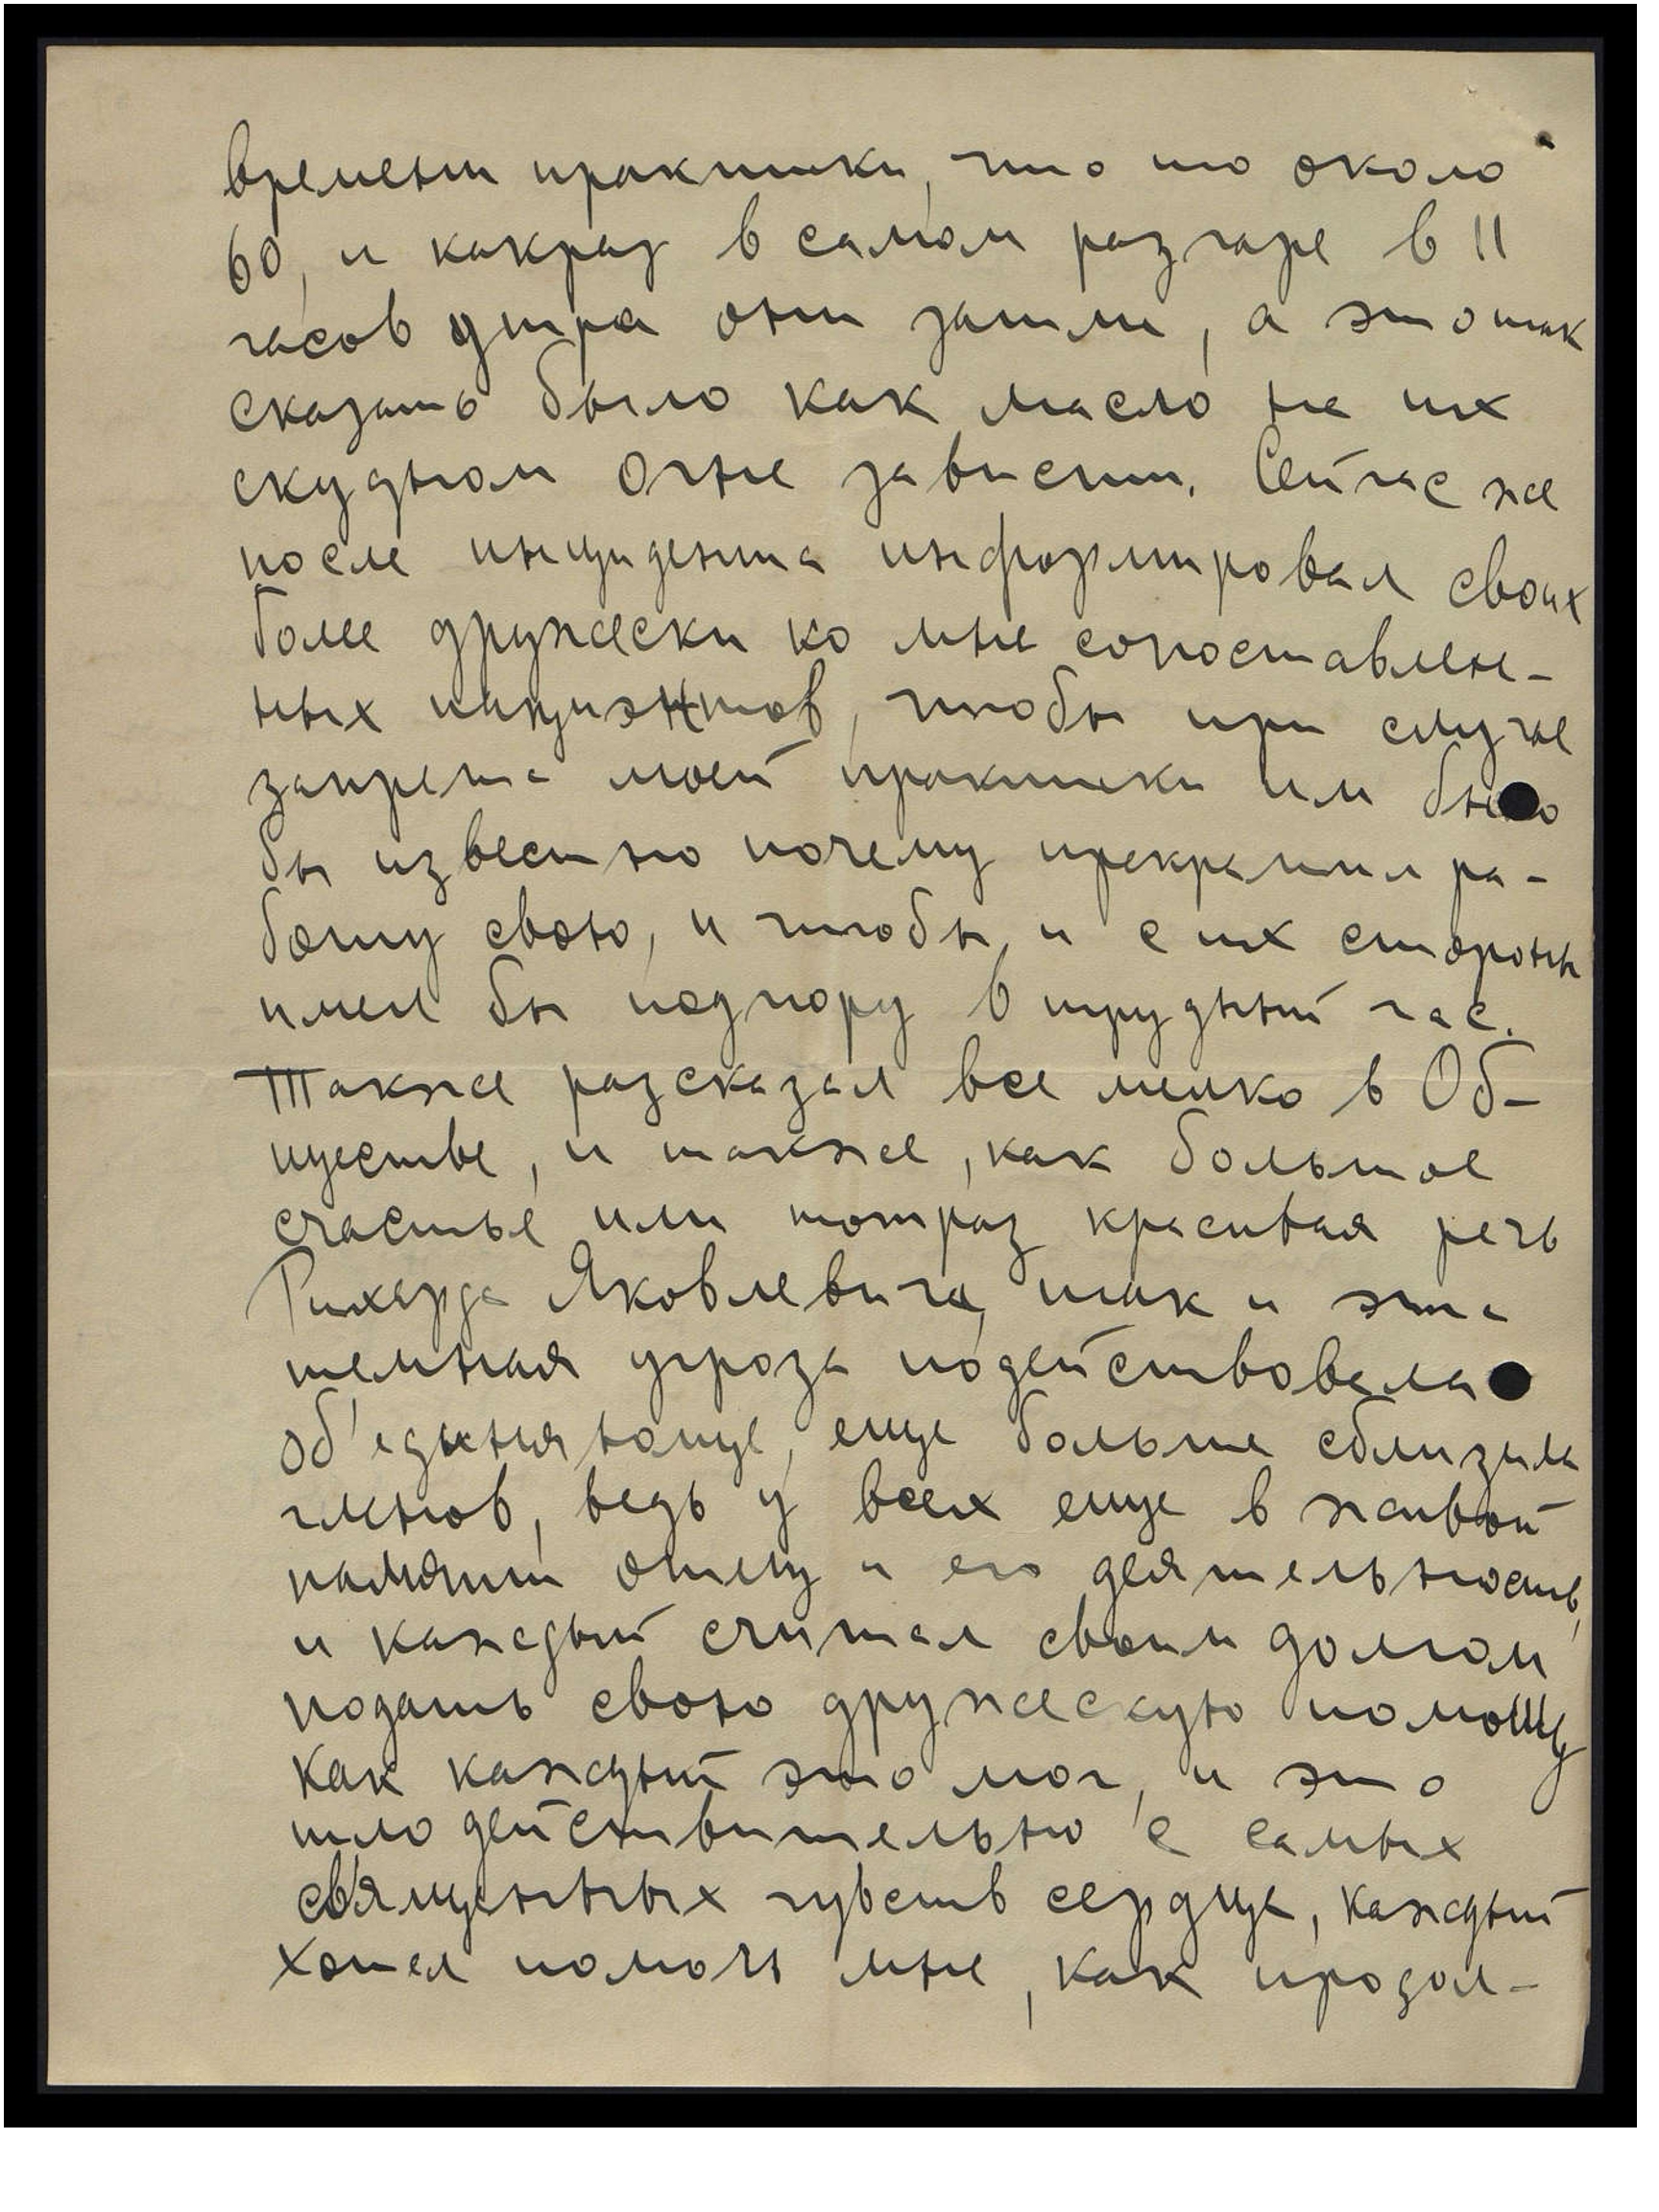 времени практики, что то около
60, и какраз в самом разгаре в 11
часов утра они зашли, а это так
сказать было как масло на их
скудном огне зависти. Сейчас же
после инцидента информировал своих
более дружески ко мне сопоставлен-
ных пациэнтов, чтобы при случае
запрета моей практики им было
бы известно почему прекратил ра-
боту свою, и чтобы и с их стороны
имел бы подпору в трудный час.
Также разсказал все мелко в Об-
ществе, и также, как большое
счастье или тотраз красивая речь
Рихарда Яковлевича, так и эта
темная угроза подействовала
об'единяюще, еще больше сблизила
членов, ведь у всех еще в живой
памяти отец и его деятельность,
и каждый считал своим долгом
подать свою дружескую помощу
как каждый это мог, и это
шло действительно с самых
священных чувств сердца, каждый
хотел помочь мне, как продол-